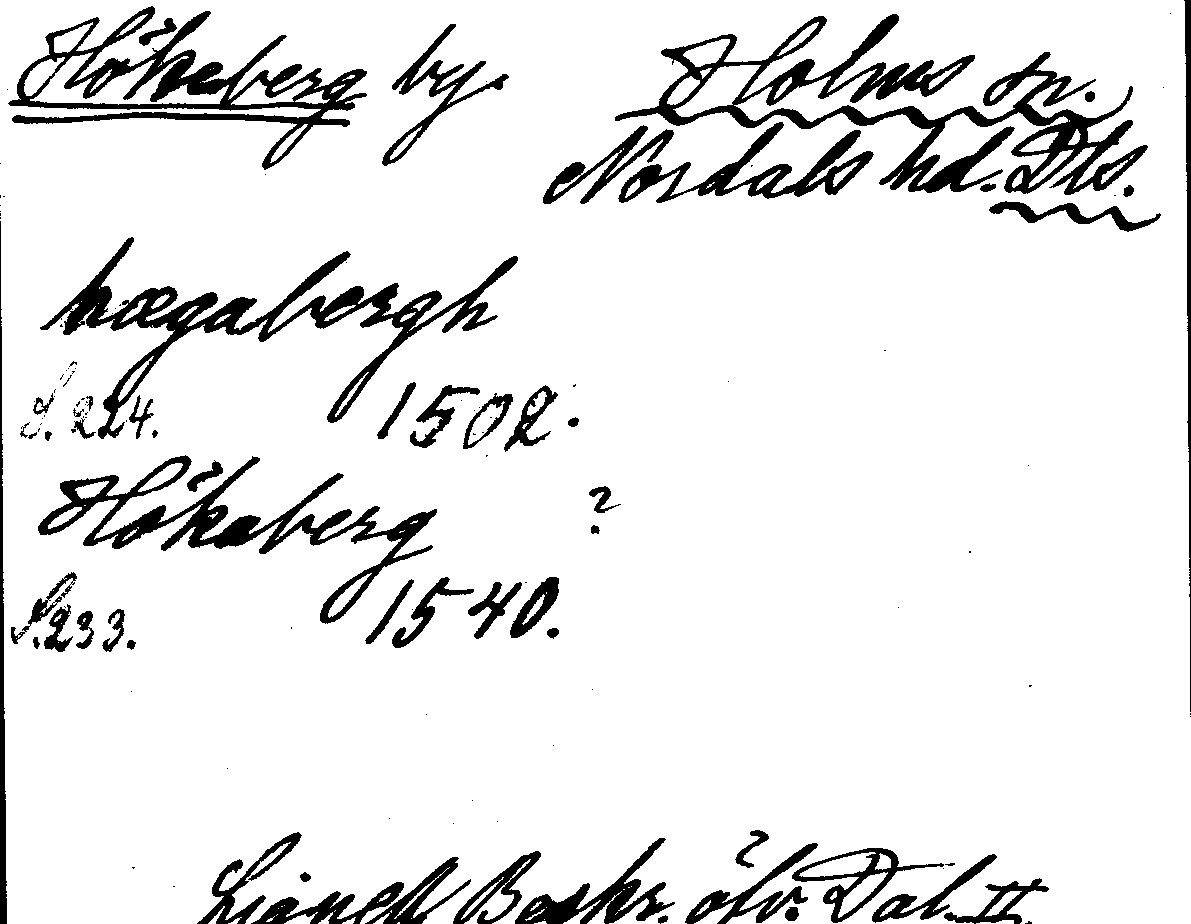 Hökeberg by. Holms sn.
Nordals hd. Dls.
hægabergh
S. 224. 1502.
Hökaberg ?
S. 233. 1540.
Lignell Beskr. öfv. Dal. II.